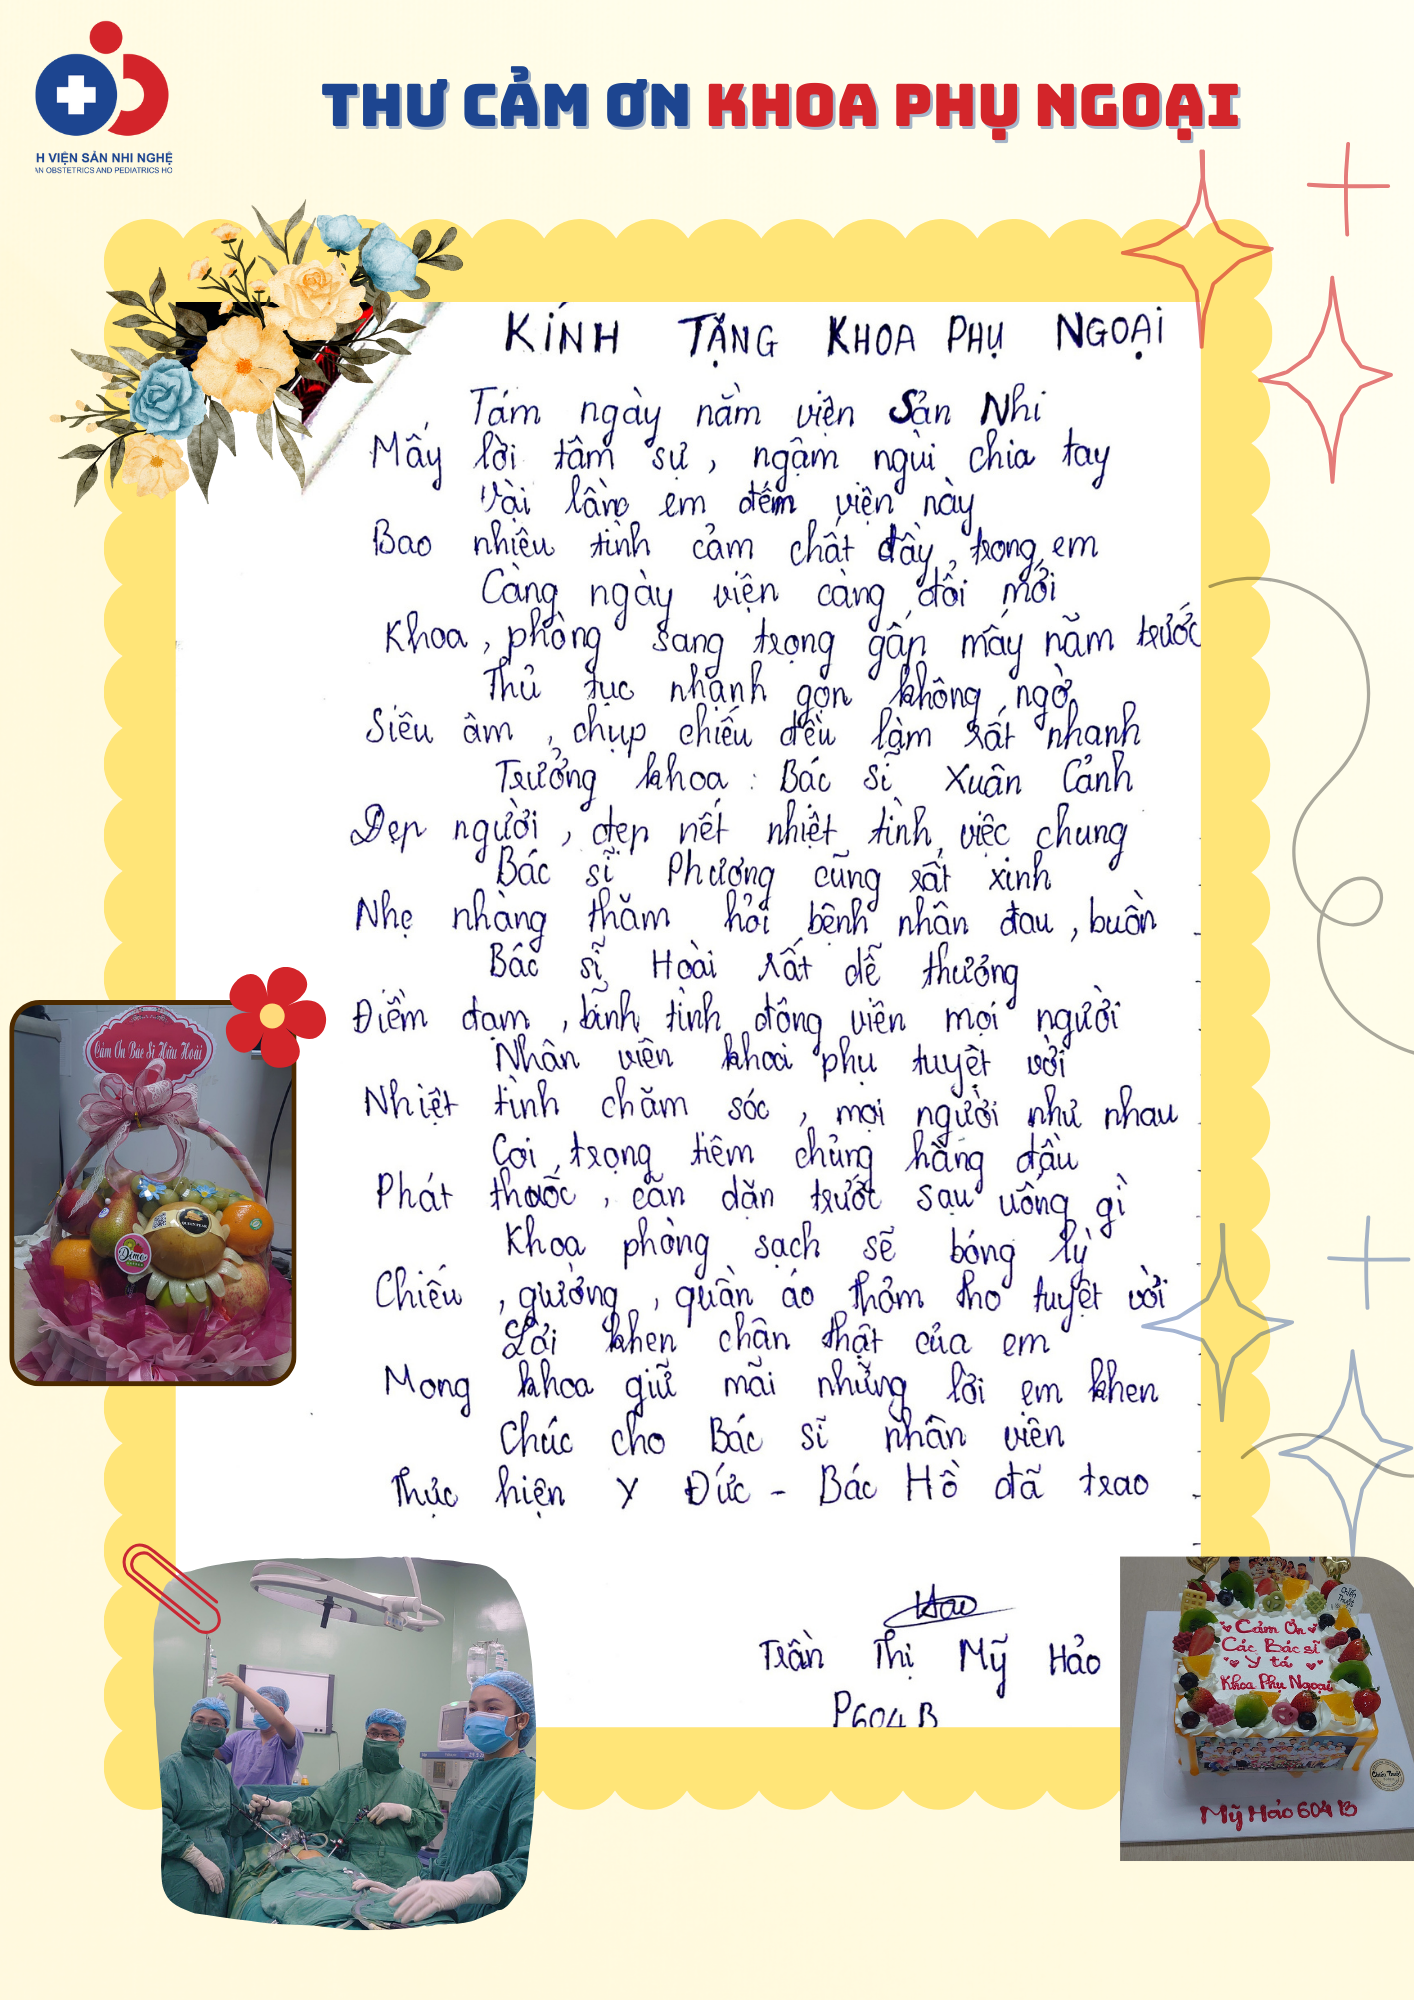 H VIỆN SẢN NHI NGHỆ
AN OBSTETRICS AND PEDIATRICS HO
THƯ CẢM ƠN KHOA PHỤ NGOẠI
KÍNH TẶNG KHOA PHỤ NGOẠI
Tám ngày nằm viện Sản Nhi
Mấy lời tâm sự, ngậm ngùi chia tay
Vài lần em đến viện này
Bao nhiêu tình cảm chất đầy trong em
Càng ngày viện càng đổi mới
Khoa, phòng sang trọng gấp mấy năm trước
Thủ tục nhanh gọn không ngờ
Siêu âm, chụp chiếu đều làm rất nhanh
Trưởng khoa: Bác sĩ Xuân Cảnh
Đẹp người, đẹp nết nhiệt tình việc chung
Bác sĩ Phương cũng rất xinh
Nhẹ nhàng thăm hỏi bệnh nhân đau, buồn
Bác sĩ Hoài rất dễ thương
Điềm đạm, bình tĩnh động viên mọi người
Nhân viên khoa phụ tuyệt vời
Nhiệt tình chăm sóc, mọi người như nhau
Coi trọng tiêm chủng hằng đầu
Phát thuốc, căn dặn trước sau uống gì
Khoa phòng sạch sẽ bóng lỳ
Chiếu, giường, quần áo thơm tho tuyệt vời
Lời khen chân thật của em
Mong khoa giữ mãi những lời em khen
Chúc cho Bác sĩ nhân viên
Thực hiện Y Đức - Bác Hồ đã trao
Hao
Trần Thị Mỹ Hảo
P604 B
Cảm Ơn Bác Sĩ Hữu Hoài
Dime
Cảm Ơn
Các Bác sĩ
Y tá
Khoa Phụ Ngoại
Mỹ Hảo 604 B